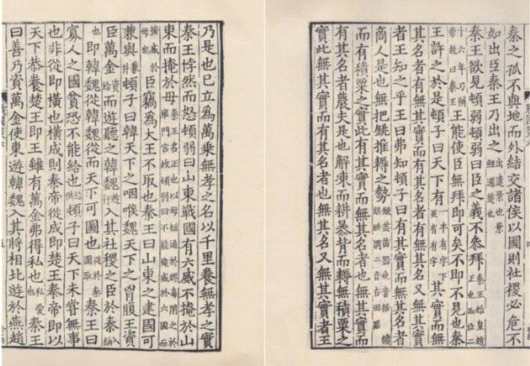 秦之孤不與地而外結交諸侯以圖則社稷必危不
如出臣秦王乃出之
秦王欲見頓弱頓弱曰臣之義不參拜
王能使臣無拜即可矣不即不見也秦
王許之於是頓子曰天下有其實而無
其名者有無其實而有其名者有無其名又無其實
者王知之乎王曰弗知頓子曰有其實而無其名者
商人是也無把銚推耨之勢
而有積粟之實此有其實而無其名者也無其實而
有其名者農夫是也解凍而耕暴背而耨無積粟之
實此無其實而有其名者也無其名又無其實者王
乃是也已立為萬乘無孝之名以千里養無孝之實
秦王悖然而怒頓弱曰山東戰國有六威不掩於山
東而掩於母
臣竊為大王不取也秦王曰山東之建國可
兼與頓子曰韓天下之咽喉魏天下之胷腹王資
臣萬金而遊聽之韓魏入其社稷之臣於秦
即韓魏從韓魏從而天下可圖也秦王曰
寡人之國貧恐不能給也頓子曰天下未嘗無事
也非從即橫也橫成則秦帝從成即楚王秦帝即以
天下恭養楚王即王雖有萬金弗得私也秦王
曰善乃資萬金使東遊韓魏入其將相北遊於燕趙